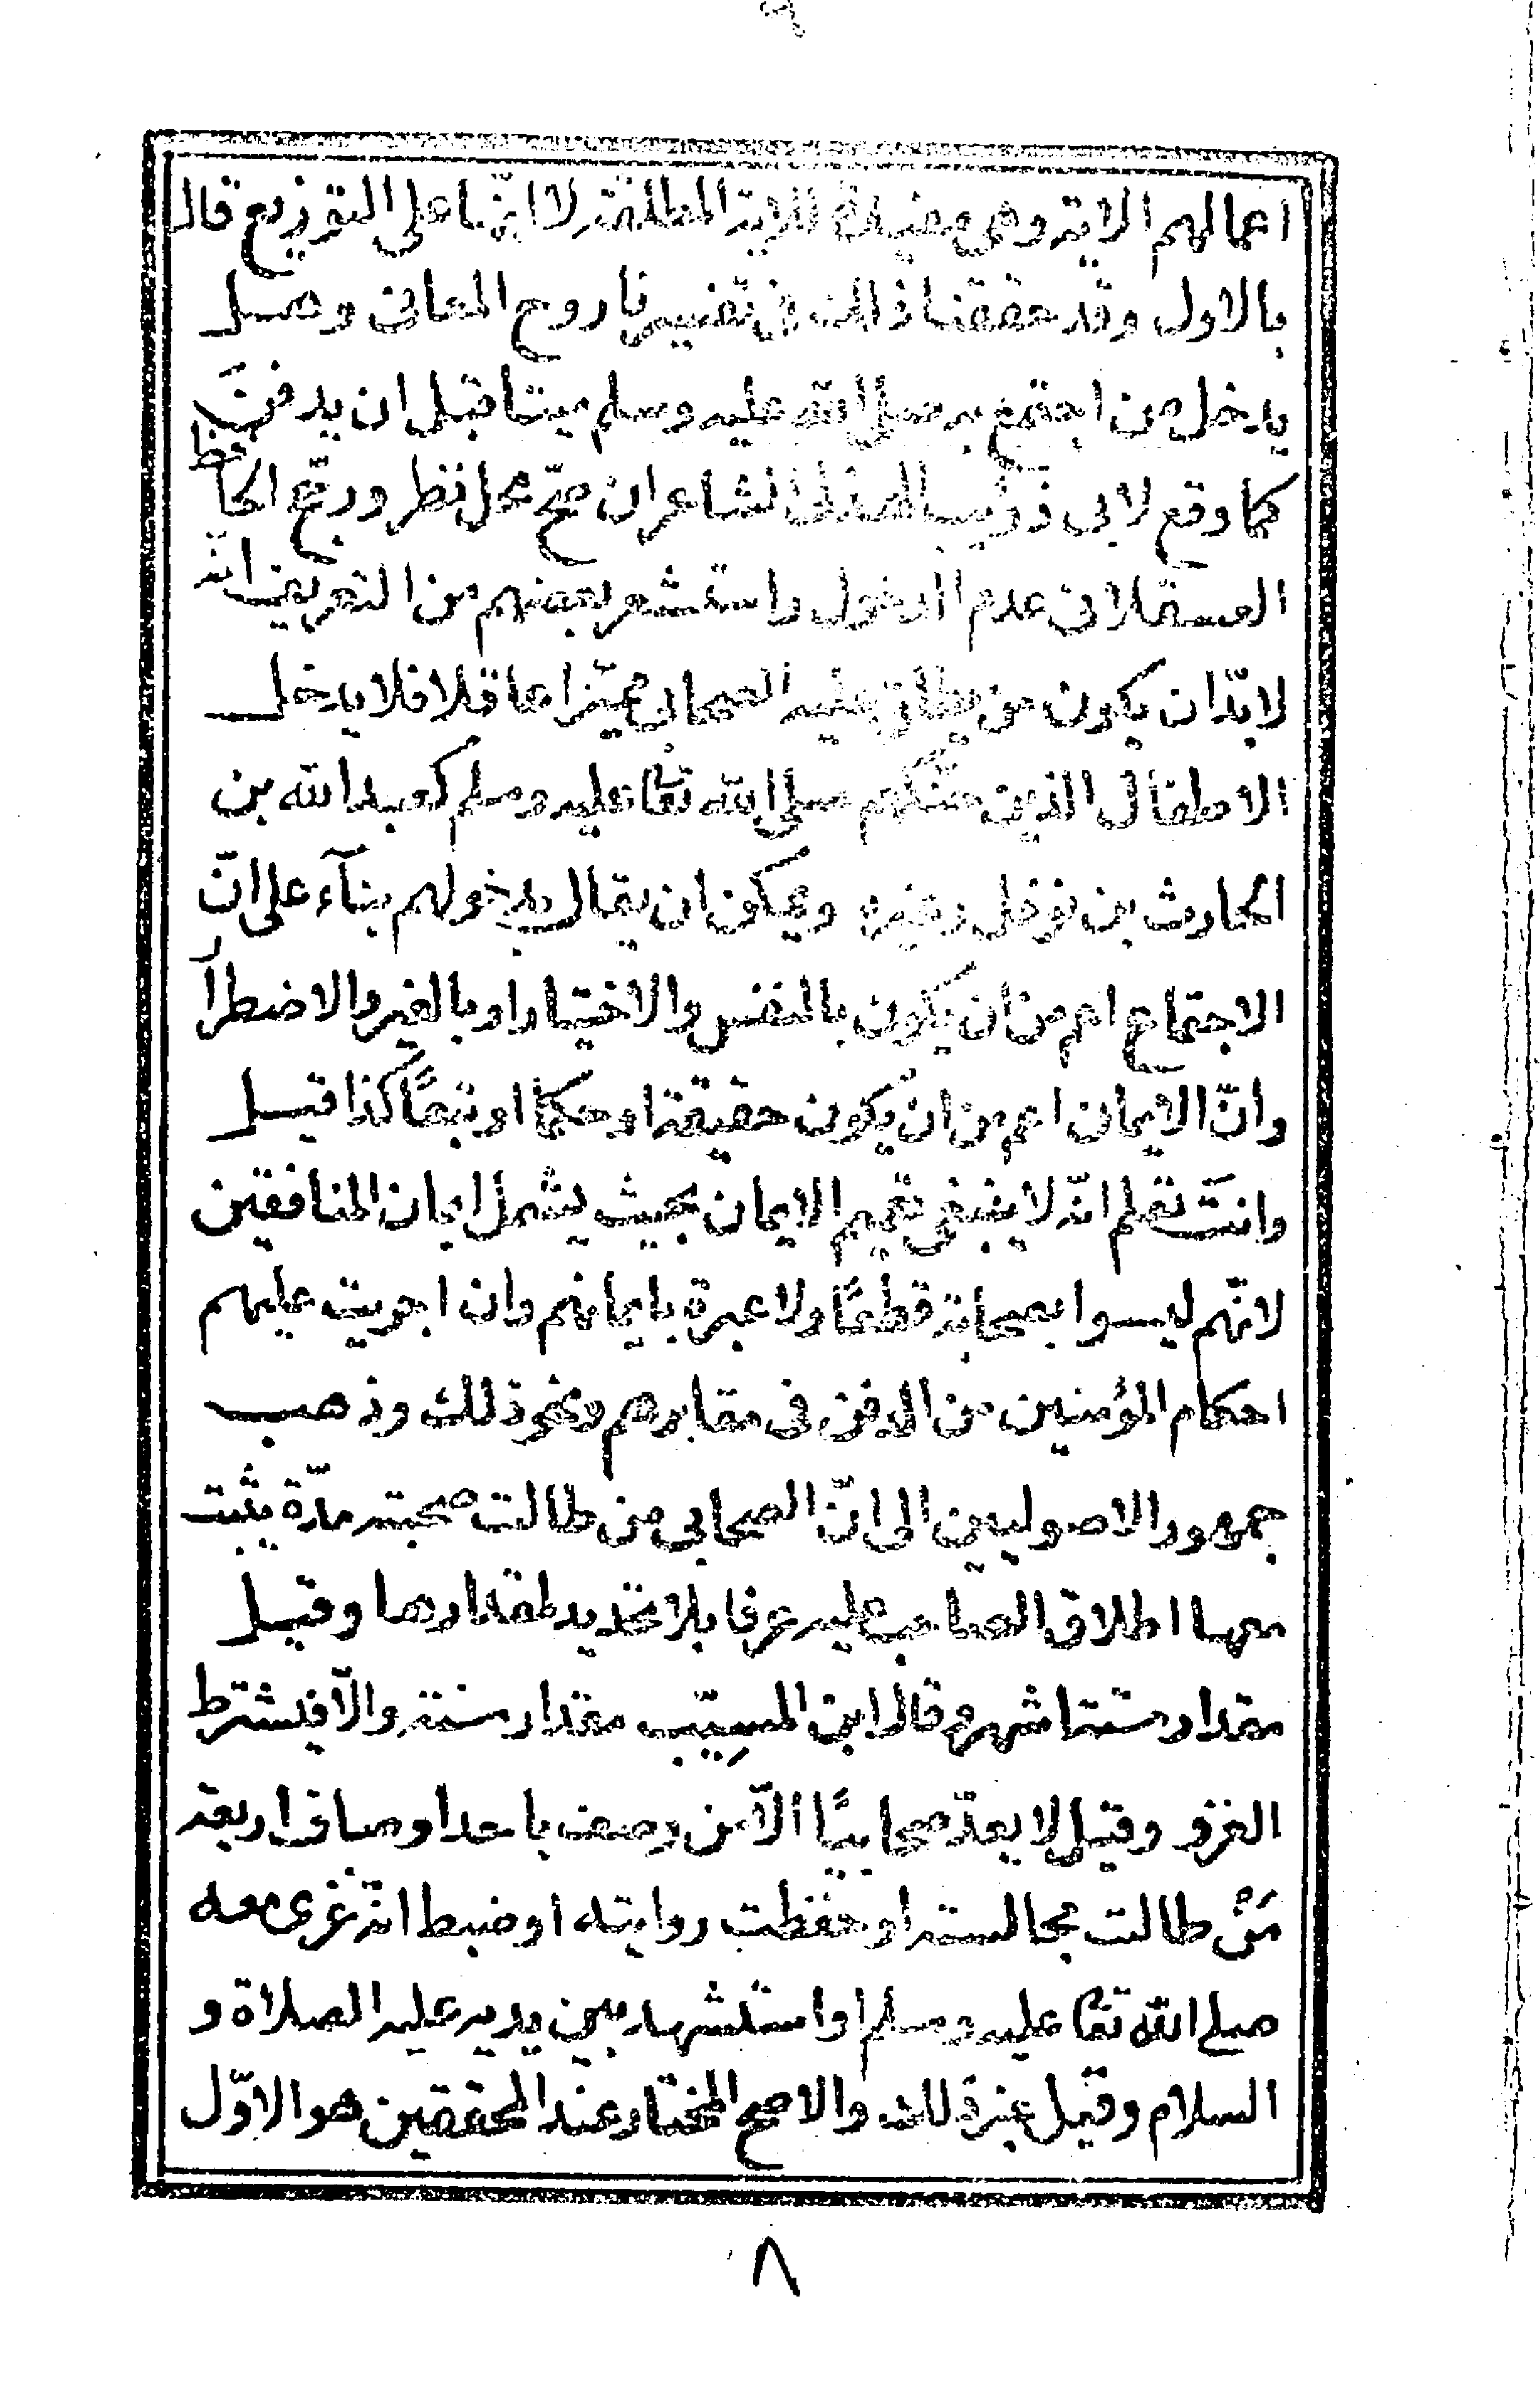 اعمالهم الاية وهى مقيدة للاية المطلقة لا انّها على التوزيع قال
بالاول وقد حققنا ذلك فى تفسيرنا روح المعانى وهل
يدخل من اجتمع به صلى الله عليه وسلم ميتا قبل ان يدفنَ
كما وقع لابى ذؤيب الهذلى الشاعر ان صحّ محل نظر ورجّح الحافظ
العسقلانى عدم الدخول واستشعر بعضهم من التعريف انّه
لابدّ ان يكون من يطلق عليه الصحابى مميّزا عاقلا فلا يدخل
الاطفال الذين حنّكهم صلى الله تعا عليه وسلم كعبد الله بن
الحارث بن نوفل وغيره ويمكن ان يقال بدخولهم بنآء على انّ
الاجتماع اعم من ان يكون بالنفس والاختيار او بالغير والاضطرار
وانّ الايمان اعم من ان يكون حقيقة او حكما او تبعًا كذا قيل
وانتَ تعلم انّه لا ينبغى تعميم الايمان بحيث يشمل ايمان المنافقين
لانّهم ليسوا بصحابة قطعًا ولا عبرة بايمانهم وان اجريت عليهم
احكام المؤمنين من الدفن فى مقابرهم ونحو ذلك وذهب
جمهور الاصوليين الى انّ الصحابى من طالت صحبته مدّة يثبت
معها اطلاق الصاحب عليه عرفا بلا تحديد لمقدارها وقيل
مقدار ستة اشهر وقال ابن المسيِّب مقدار سنة والّا فيشترط
الغزو وقيل لا يعدّ صحابيًا الّا من وصف باحد اوصاف اربعة
مَنْ طالت مجالسته او حفظت روايته او ضبط انّه غزى معه
صلى الله تعا عليه وسلم او استشهد بين يديه عليه الصلاة و
السلام وقيل غير ذلك والاصح المختار عند المحققين هو الاوّل
٨